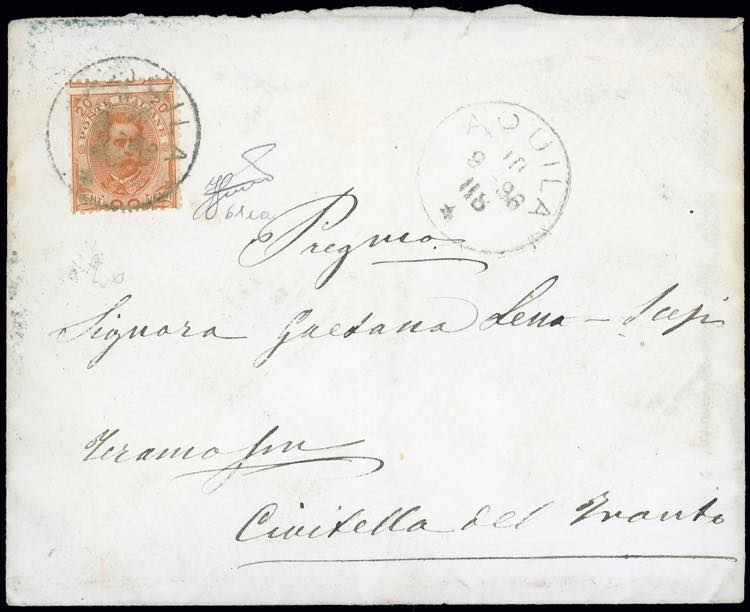 20 POSTE ITALIANE 20
AQUILA
61 ea
20
AQUILA
Pregma
Signora Gaetana Lena - Scepi
Teramo per
Civitella del Tronto